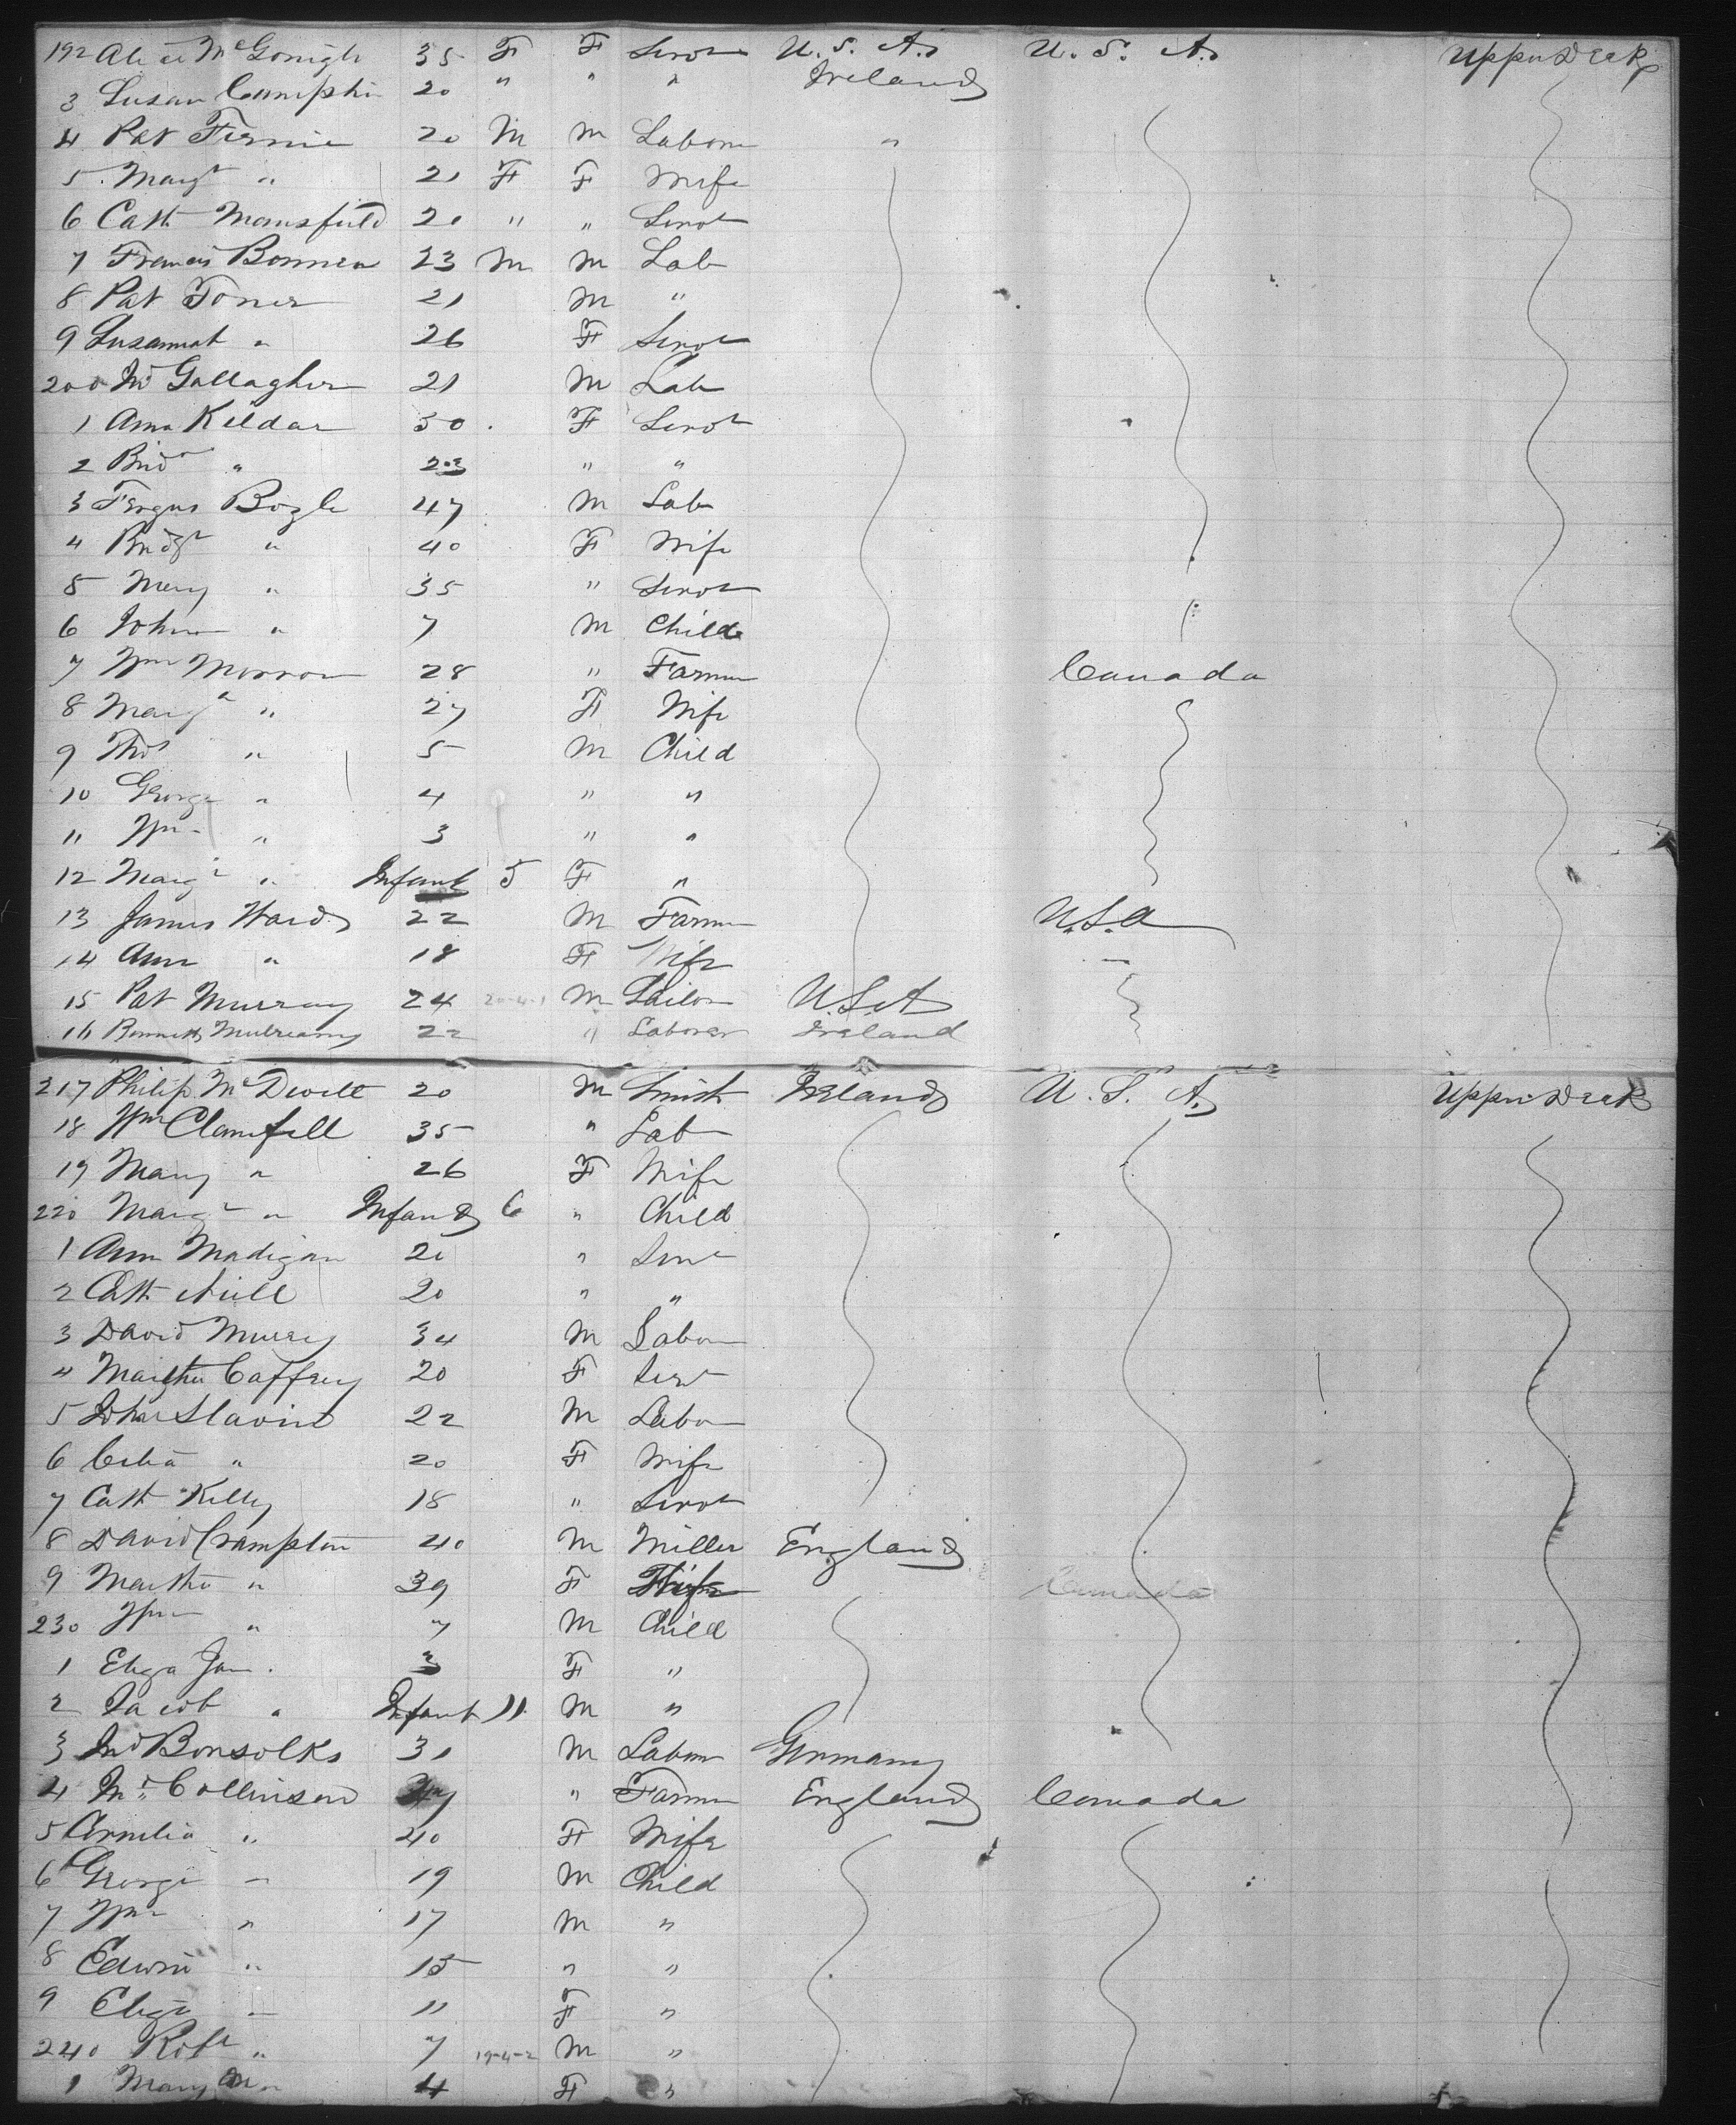 192 Alice McGonigle 35 F F Servt U. S. A. U. S. A. Upper Deck
3 Susan 20 " " " Ireland
4 Pat 20 M M Labor "
5 Margt " 21 F F Wife
6 Cath Mansfield 20 " " Servt
7 Francis Bonner 23 M M Lab
8 Pat Toner 21 M "
9 Susannah " 26 F Servt
200 Jno Gallagher 21 M Lab
1 Ann Kildar 30 F Servt
2 Brid " " "
3 Fergus Bogle 47 M Lab
4 Bridgt " 40 F Wife
5 Mary " 35 " Servt
6 John " 7 M Child
7 Wm Morrow 28 " Farmer Canada
8 Margt " 27 F Wife
9 Thos " 5 M Child
10 George " 4 " "
11 Wm " 3 " "
12 Margt " Infant 5 F "
13 James Ward 22 M Farmer U.S.A
14 Ann " 18 F Wife
15 Pat Murray 24 M U.S.A
16 22 " Laborer Ireland
217 Philip McDevitt 20 M Smith Ireland U. S. A. Upper Deck
18 Wm 35 " Lab
19 Mary " 26 F Wife
220 Margt " Infant 6 " Child
1 Ann Madigan 20 " Servt
2 Cath Neill 20 " "
3 David Murray 34 M Labor
4 Caffrey 20 F Servt
5 John Slavin 22 M Labor
6 Celia " 20 F Wife
7 Cath Kelly 18 " Servt
8 David Crampton 40 M Miller England
9 Martha " 39 F Wife Canada
230 Wm " 7 M Child
1 Eliza Jane 3 F "
2 Jacob " Infant 11 M "
3 Jno Bonsolks 31 M Labor Germany
4 Collinson " Farmer England Canada
5 " 40 F Wife
6 George " 19 M Child
7 Wm " 17 M "
8 Edwin " 15 " "
9 Eliza " 11 F "
240 Robt " 7 19-4-2 M "
1 Mary Ann " 4 F "